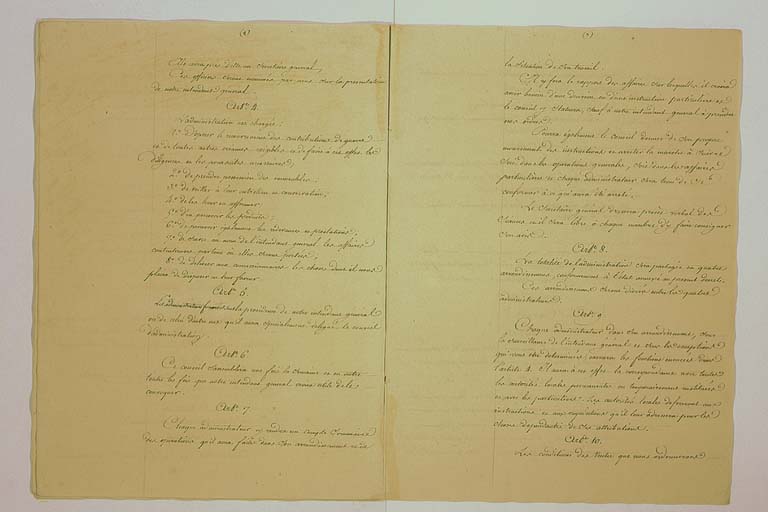 (4)
Il sera près d'elle un Secrétaire général,
Ces officiers seront nommés par nous sur la présentation
de notre intendant général.
Art. 4.
L'administration est chargée:
1.º D'opérer le recouvrement des contributions de guerre
et de toutes autres créances exigibles et de faire à cet effet les
diligences et les poursuites nécessaires;
2.º de prendre possession des
3.º de veiller à leur entretien et conservation;
4.º de les louer ou affermer
5.º d'en percevoir les produits;
6.º de percevoir également les redevances et prestations;
7.º de suivre au nom de l'intendant général les affaires
contentieuses partout où elles seront portées;
8.º de délivrer aux concessionnaires les choses dont il nous
plaira de disposer en leur faveur
Art. 5.
sous la présidence de notre intendant général
ou de celui d'entre eux qu'il aura spécialement délégué, le conseil
d'administration.
Art. 6
Ce conseil s'assemblera une fois la semaine et en outre
toutes les fois que notre intendant général croira utile de le
convoquer.
Art. 7
Chaque administrateur y rendra un compte sommaire
des opérations qu'il aura faites dans son arrondissement et de
(5)
la situation de son travail.
Il y fera le rapport des affaires sur lesquelles il croira
avoir besoin d'une décision ou d'une instruction particulière et
le conseil y statuera, sauf à notre intendant général à prendre
nos ordres.
Pourra également le conseil donner de son propre
mouvement des instructions et arrêter la marche à suivre
soit dans les opérations générales, soit dans les affaires
particulières et chaque administrateur sera tenu de s'y
conformer à ce qui aura été arrêté.
Le Secrétaire général dressera procès verbal des
séances où il sera libre à chaque membre d'y faire consigner
son avis.
Art. 8.
La totalité de l'administration sera partagée en quatre
arrondissemens, conformément à l'état annexé au présent décret.
Ces arrondissemens seront divisés entre les quatre
administrateurs.
Art. 9
Chaque administrateur dans son arrondissement, sous
la surveillance de l'intendant général et sous les exceptions
qui vont être déterminées, exercera les fonctions énoncées dans
l'article 4. Il aura à cet effet la correspondance avec toutes
les autorités locales permanentes ou temporairement instituées
et avec les particuliers. Les autorités locales déféreront aux
instructions et aux réquisitions qu'il leur adressera pour les
choses dépendantes de ses attributions.
Art. 10.
Les conditions des ventes que nous ordonnerons